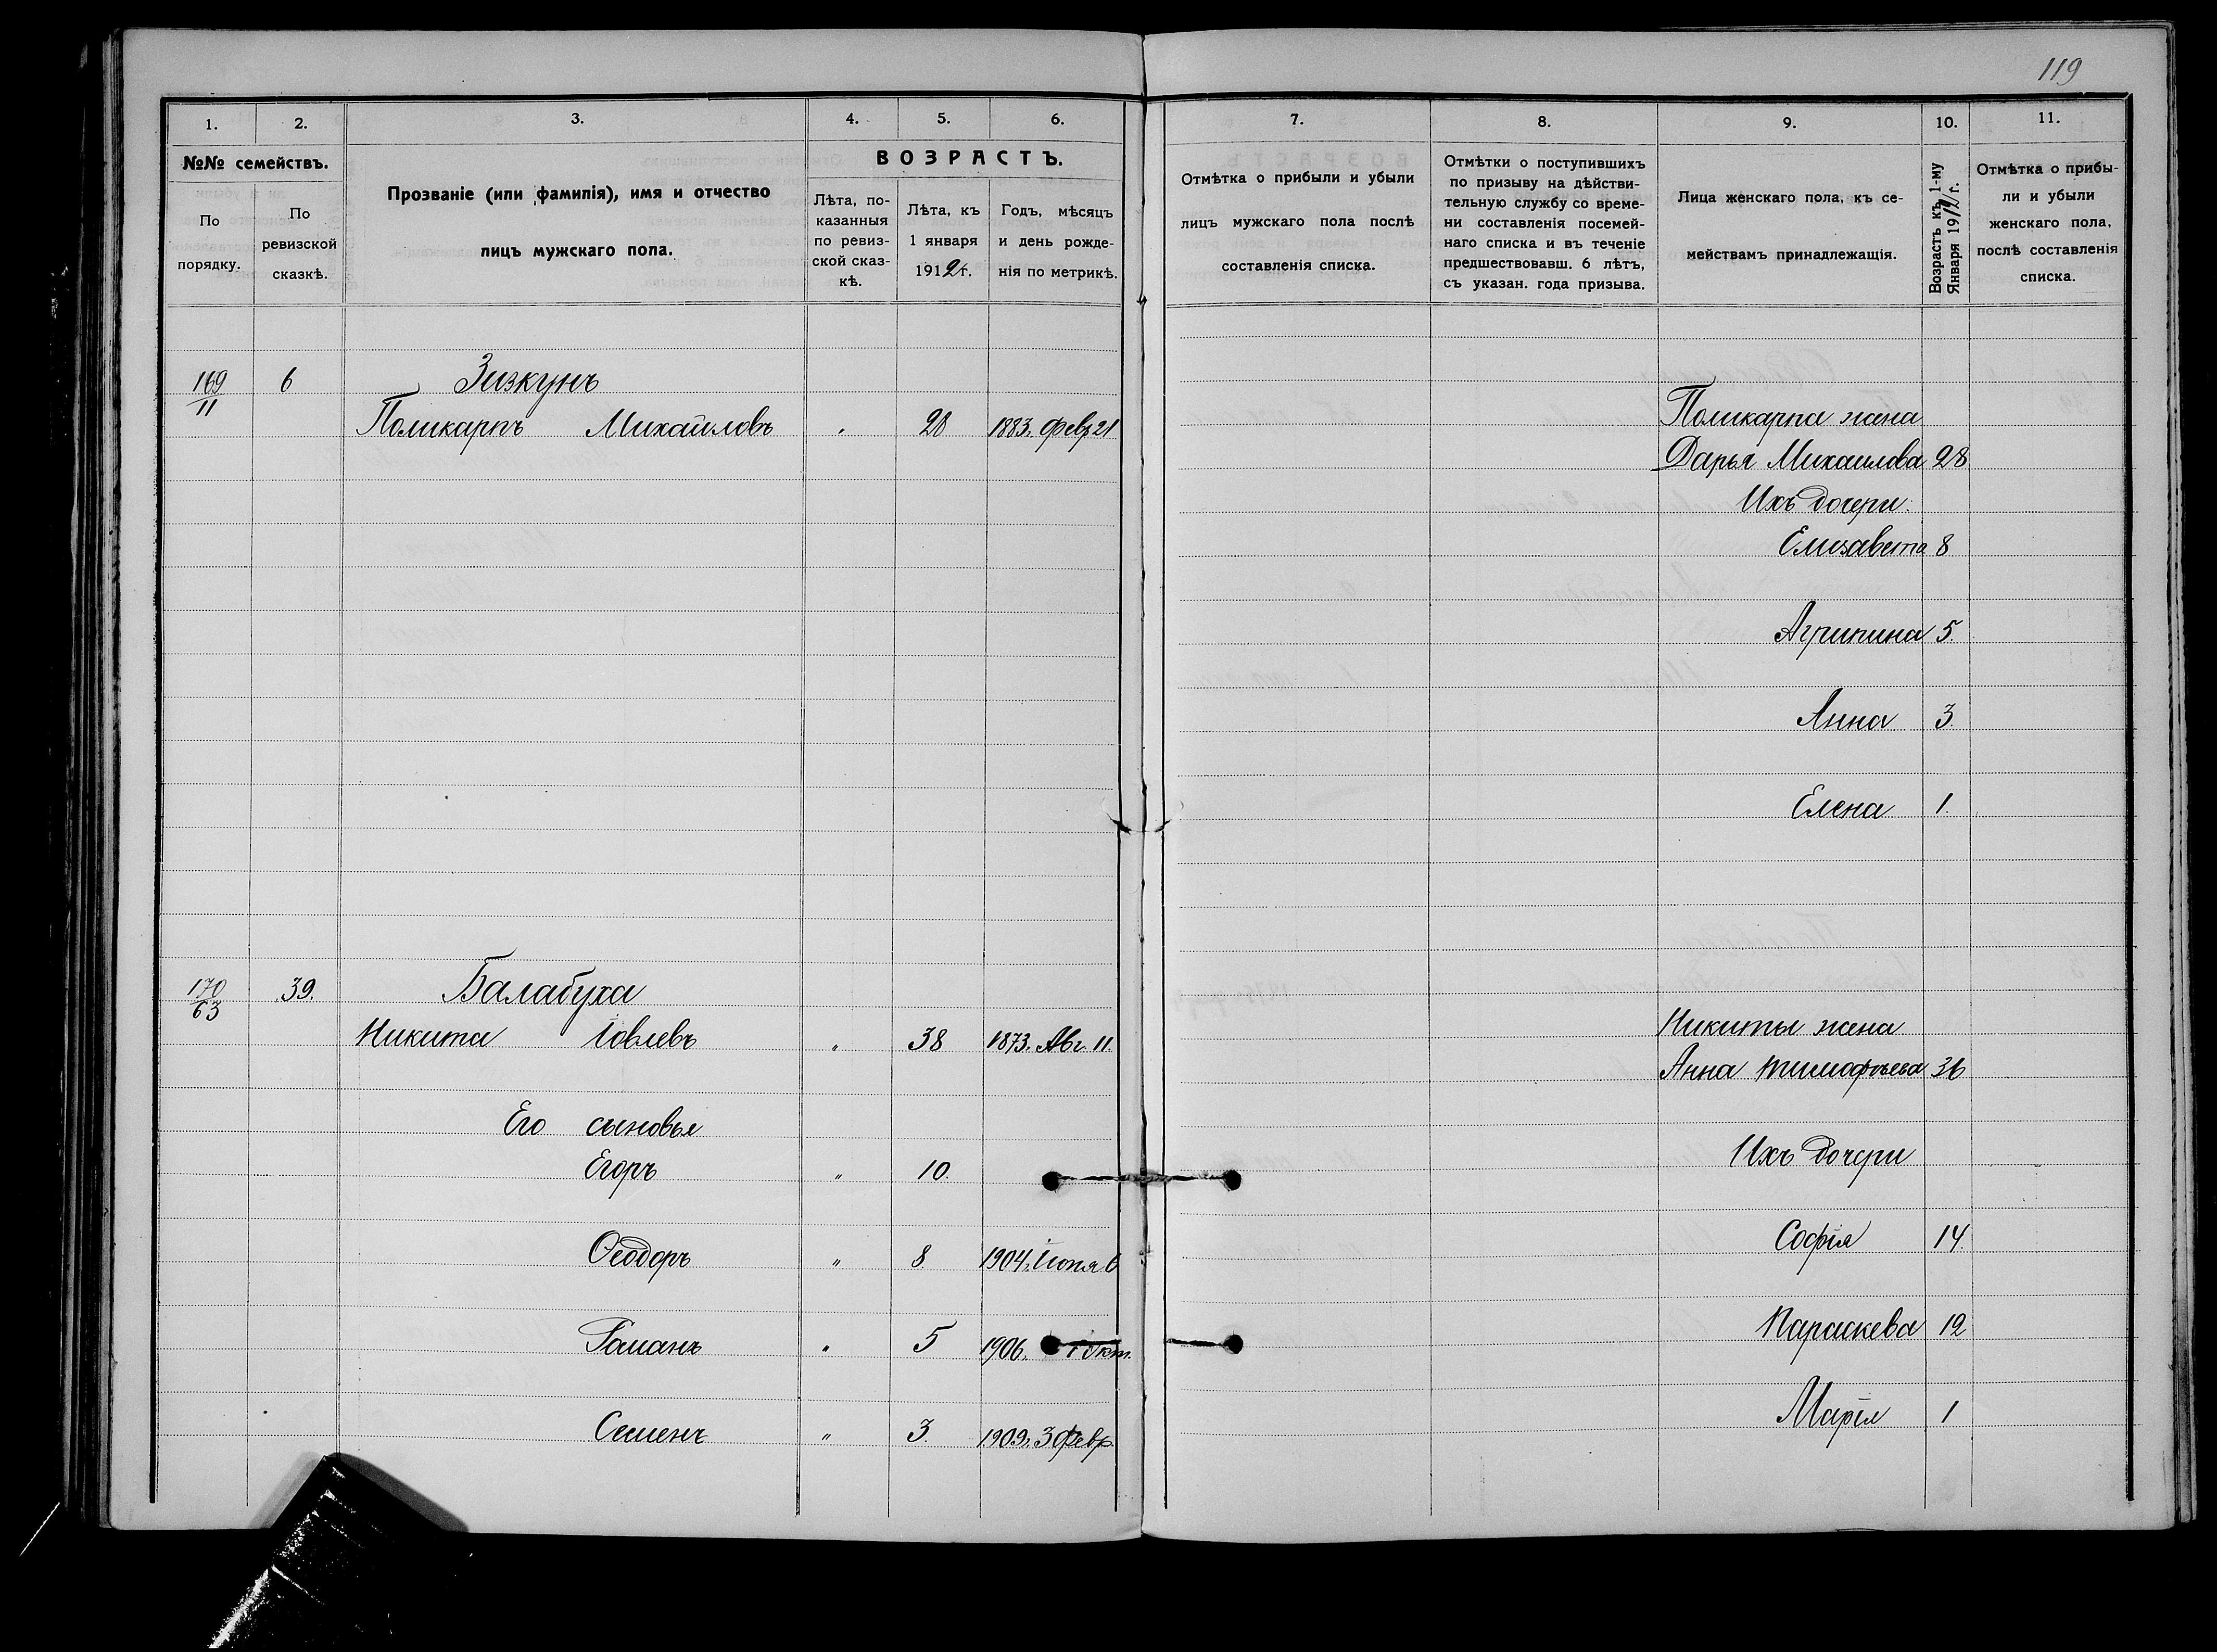 119
1.
2.
3.
4.
5.
6.
№№ семействъ.
По порядку.
По ревизской сказкѣ.
Прозваніе (или фамилія), имя и отчество
лицъ мужскаго пола.
ВОЗРАСТЪ.
Лѣта, по-
казанныя
по ревиз-
ской сказ-
кѣ.
Лѣта, къ
1 января
1912 г.
Годъ, мѣсяцъ
и день рожде-
нія по метрикѣ.
7.
8.
9.
10.
11.
Отмѣтка о прибыли и убыли
лицъ мужскаго пола послѣ
составленія списка.
Отмѣтки о поступившихъ
по призыву на дѣйстви-
тельную службу со време-
ни составленія посемей-
наго списка и въ теченіе
предшествовавш. 6 лѣтъ,
съ указан. года призыва.
Лица женскаго пола, къ се-
мействамъ принадлежащія.
Возрастъ къ 1-му
Января 1912 г.
Отмѣтка о прибы-
ли и убыли
женскаго пола,
послѣ составленія
списка.
169/11 6 Зизкунъ
Поликарпъ Михайловъ " 28 1883. Февр 21
170/63 39. Балабуха
Никита Іовлевъ " 38 1873. Авг. 11.
Его сыновья
Егоръ " 10.
Ѳеодоръ " 8. 1904. Іюня 6
Романъ " 5 1906. 1 Окт.
Семенъ " 3. 1909. 3 Февр
Поликарпа жена
Дарья Михаилова 28
Ихъ дочери:
Елизавета 8
Агрипина 5.
Анна 3.
Елена 1.
Никиты жена
Анна Тимофѣева 36
Ихъ дочери
Софія 14.
Параскева 12
Марія 1